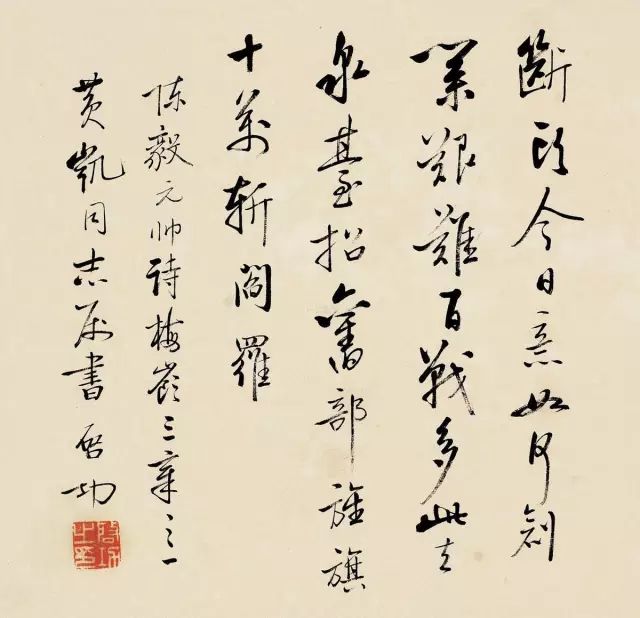 斷頭今日意如何創
業艱難百戰多此去
泉臺招舊部旌旗
十萬斬閻羅
陈毅元帅詩梅嶺三章之一
黄凱同志属書 启功
启功之印